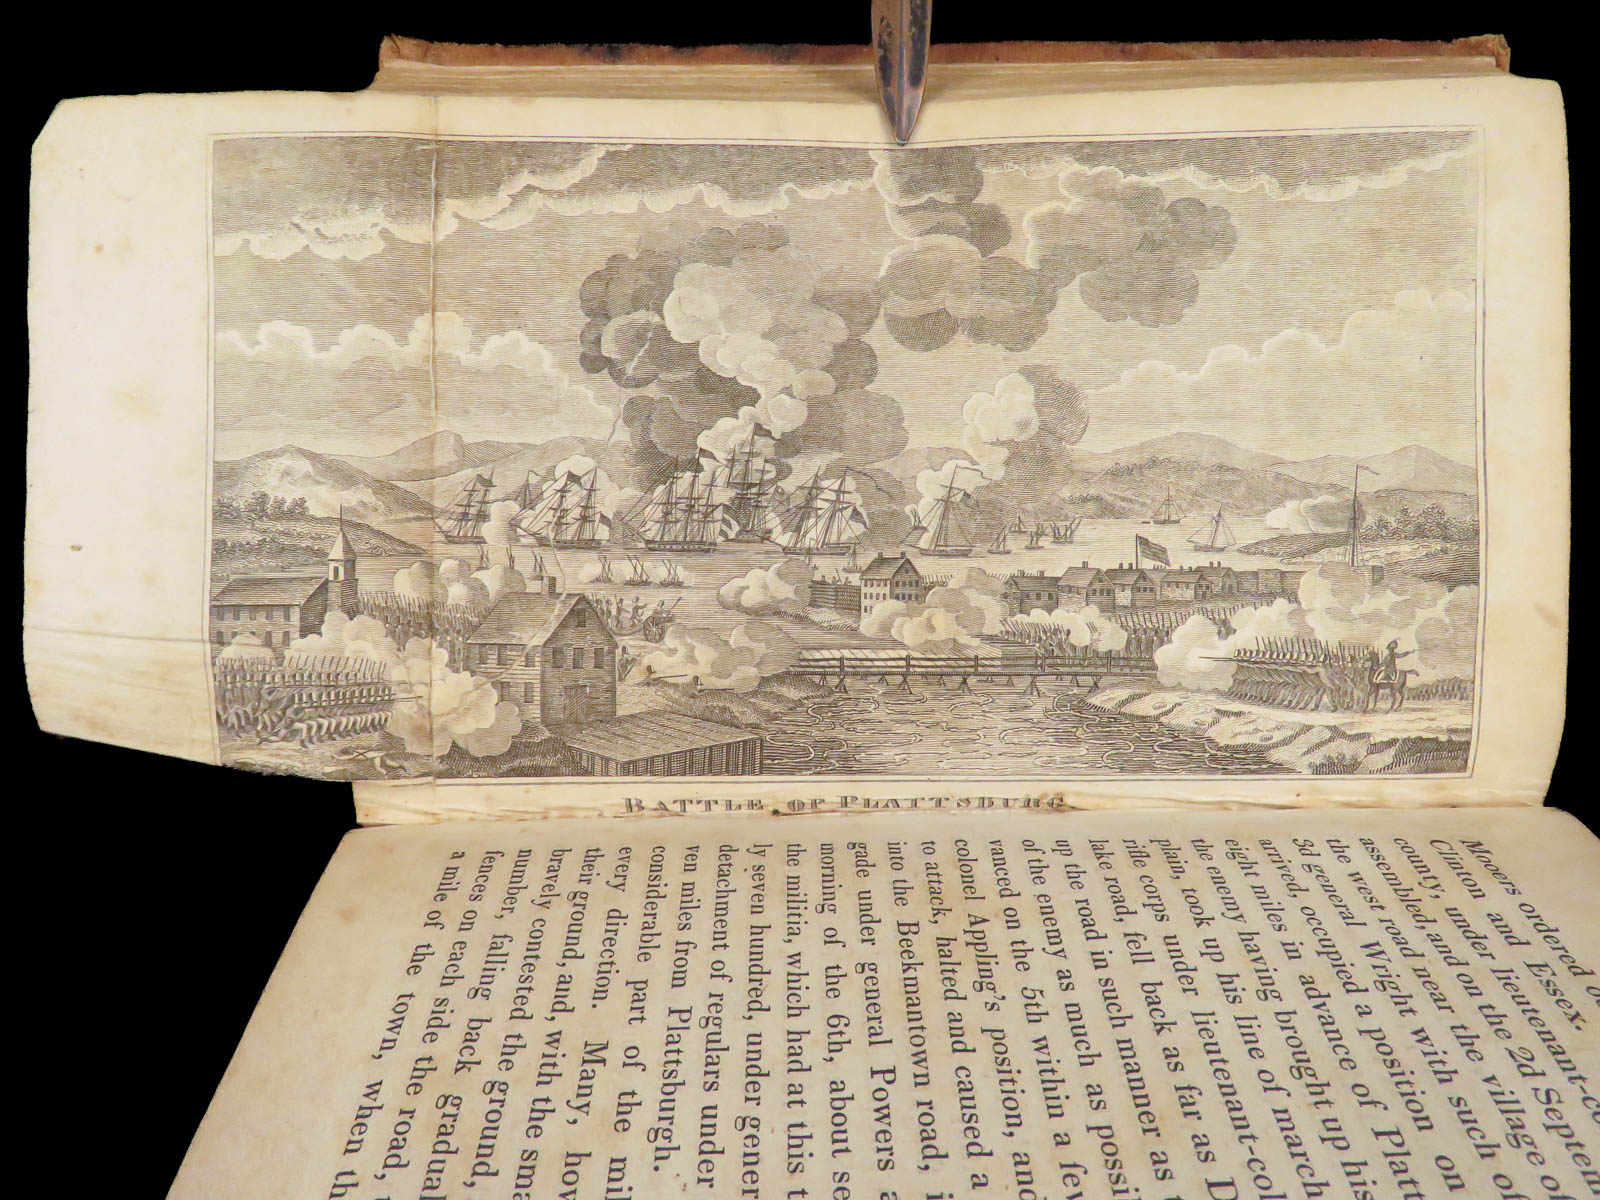 BATTLE OF PLATTSBURG
Mooers ordered
Clinton and Essex.
county, under lieutenant-co
assembled, and on the 2d Septem
the west road near the village o
general Wright with such of
3d general occupied a position on
arrived, in advance of Platt
eight miles having brought up his
the enemy his line of march
plain, took up lieutenant-col
rifle corps under as far as D
lake road, fell back manner as t
up the road in such much as possi
of the enemy as within a few
vanced on the 5th position, and
colonel Appling's caused a
to attack, halted and
into the Beekmantown road, i
gade under general Powers a
morning of the 6th, about se
the militia, which had at this t
ly seven hundred, under gener
detachment of regulars under
ven miles from Plattsburgh.
considerable part of the mil
every direction. Many, how
their ground, and, with the sma
bravely contested the ground,
number, falling back gradual
fences on each side the road,
a mile of the town, when th